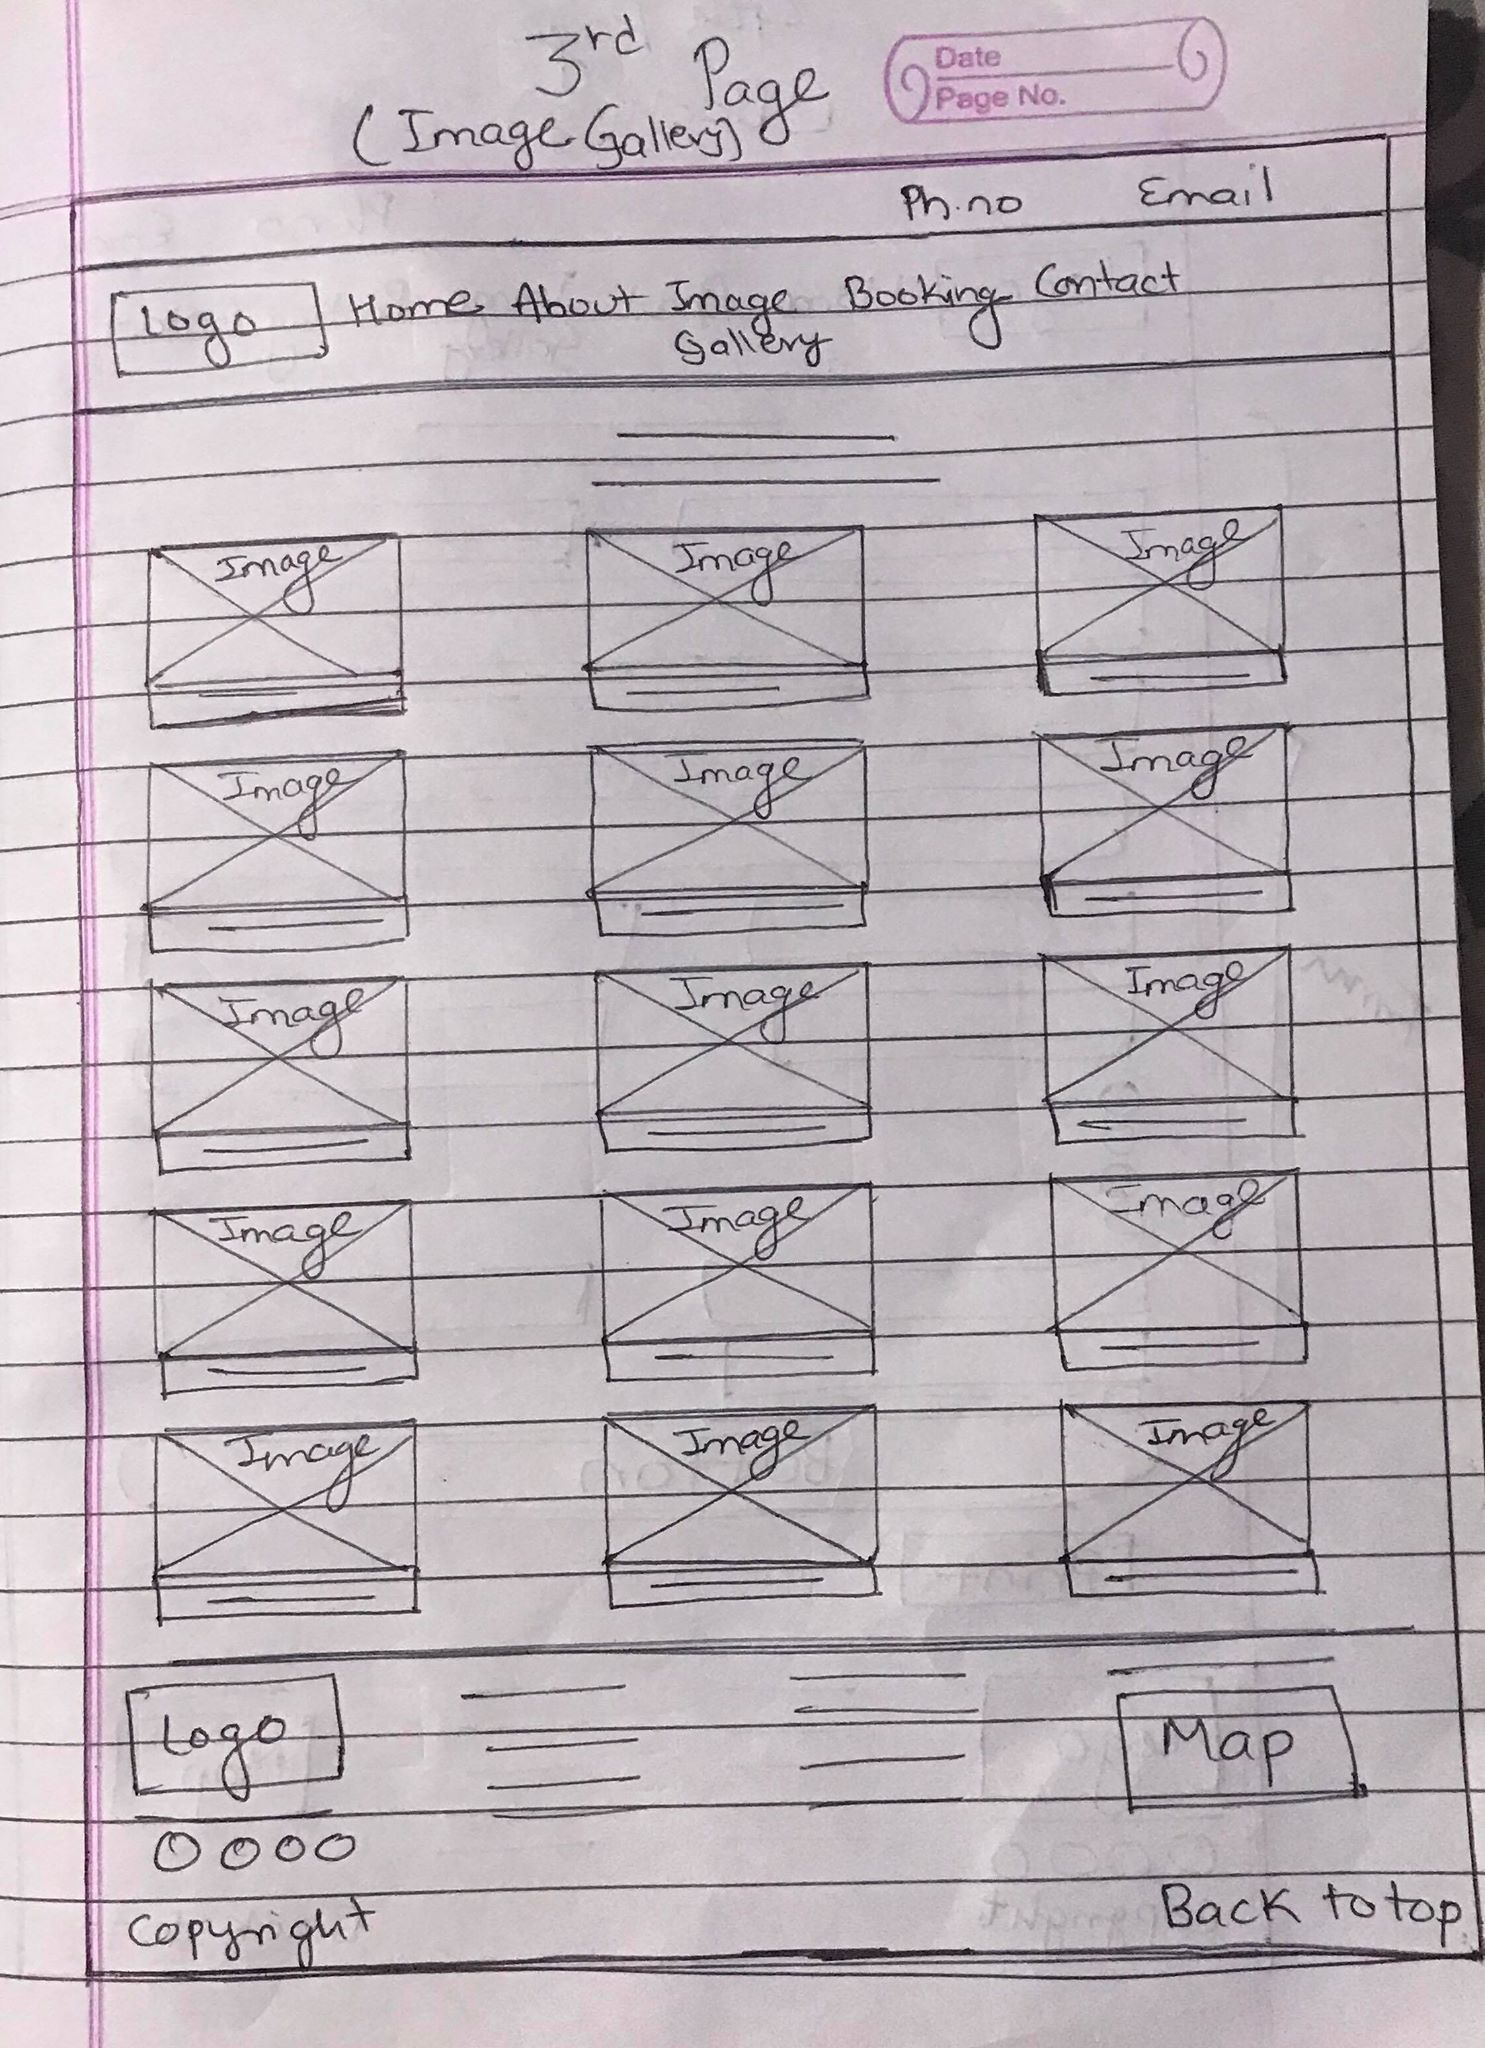 3rd Page
(Image Gallery)
Date
Page No.
Ph.no Email
Logo Home About Image Booking Contact
Gallery
Image Image Image
Image Image Image
Image Image Image
Image Image Image
Image Image Image
Logo Map
Copyright Back to top